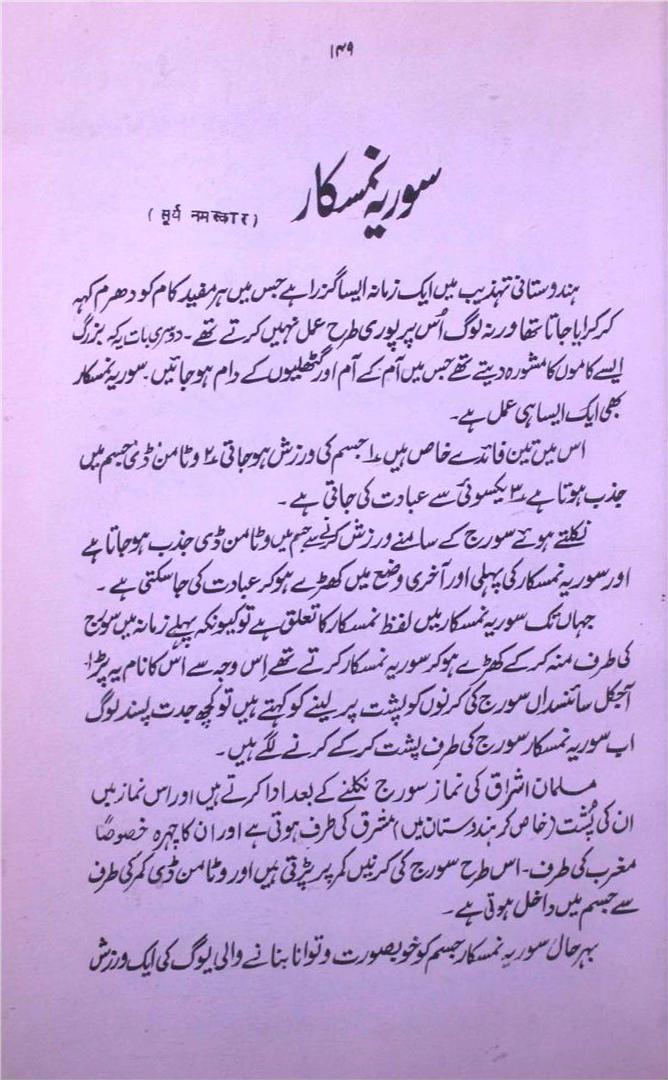 ۱۴۹
سوریہ نمسکار
( सूर्य नमस्कार )
ہندوستانی تہذیب میں ایک زمانہ ایسا گزرا ہے جس میں ہر مفید کام کو دھرم کہہ
کر کرایا جاتا تھا ورنہ لوگ اُس پر پوری طرح عمل نہیں کرتے تھے۔ دوسری بات یہ کہ بزرگ
ایسے کاموں کا مشورہ دیتے تھے جس میں آم کے آم اور گٹھلیوں کے دام ہو جائیں۔ سوریہ نمسکار
بھی ایک ایسا ہی عمل ہے۔
اس میں تین فائدے خاص ہیں ۱؎ جسم کی ورزش ہو جاتی ۲؎ وٹامن ڈی جسم میں
جذب ہوتا ہے ۳؎ یکسوئی سے عبادت کی جاتی ہے۔
نکلتے ہوئے سورج کے سامنے ورزش کرنے سے جسم میں وٹامن ڈی جذب ہو جاتا ہے
اور سوریہ نمسکار کی پہلی اور آخری وضع میں کھڑے ہو کر عبادت کی جا سکتی ہے۔
جہاں تک سوریہ نمسکار میں لفظ نمسکار کا تعلق ہے تو کیونکہ پہلے زمانہ میں سورج
کی طرف منہ کر کے کھڑے ہو کر سوریہ نمسکار کرتے تھے اس وجہ سے اس کا نام یہ پڑا۔
آجکل سائنسداں سورج کی کرنوں کو پشت پر لینے کو کہتے ہیں تو کچھ جدت پسند لوگ
اب سوریہ نمسکار سورج کی طرف پشت کر کے کرنے لگے ہیں۔
مسلمان اشراق کی نماز سورج نکلنے کے بعد ادا کرتے ہیں اور اس نماز میں
ان کی پُشت (خاص کر ہندوستان میں) مشرق کی طرف ہوتی ہے اور ان کا چہرہ خصوصاً
مغرب کی طرف۔ اس طرح سورج کی کرنیں کمر پر پڑتی ہیں اور وٹامن ڈی کمر کی طرف
سے جسم میں داخل ہوتی ہے۔
بہر حال سوریہ نمسکار جسم کو خوبصورت و توانا بنانے والی یوگ کی ایک ورزش